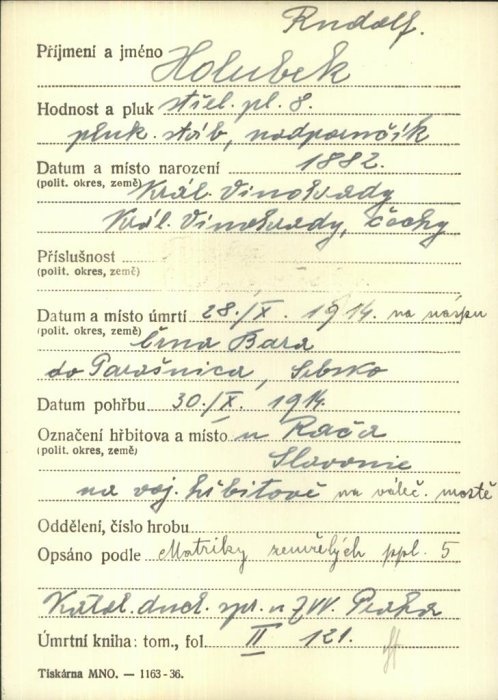 Rudolf.
Příjmení a jméno Holubek
Hodnost a pluk střel. pl. 8.
pluk. stáb, nadporučík
Datum a místo narození 1882.
(polit. okres, země) Král. Vinohrady
Král. Vinohrady, Čechy
Příslušnost
(polit. okres, země)
Datum a místo úmrtí 28./IX. 1914. na náspu
(polit. okres, země) Črna Bara
do Parašnica, Srbsko
Datum pohřbu 30./IX. 1914.
Označení hřbitova a místo u Rača
(polit. okres, země) Slavonie
na voj. hřbitově na váleč. mostě
Oddělení, číslo hrobu
Opsáno podle Matriky zemřelých ppl. 5
Katol. duch. spr. u ZVV. Praha
Úmrtní kniha: tom., fol. II 121.
Tiskárna MNO. — 1163-36.